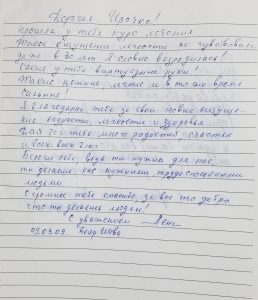 Дорогая Ирочка!
прошла у тебя курс лечения
Такое ощущение легкости не чувствовала
даже в 30 лет. Я словно возродилась!
Какие у тебя виртуозные руки!
Такие нежные, легкие и в то же время
сильные!
Я благодарна тебе за свои новые ощуще-
ния бодрости, легкости и здоровья.
Дай бог тебе много радости, счастья
и всех всех благ.
Береги себя, ведь ты нужна для нас,
ты делаешь нас нужными, трудоспособными
людьми.
Огромное тебе спасибо, за все это добро
что ты делаешь людям!
С уважением
09.03.09